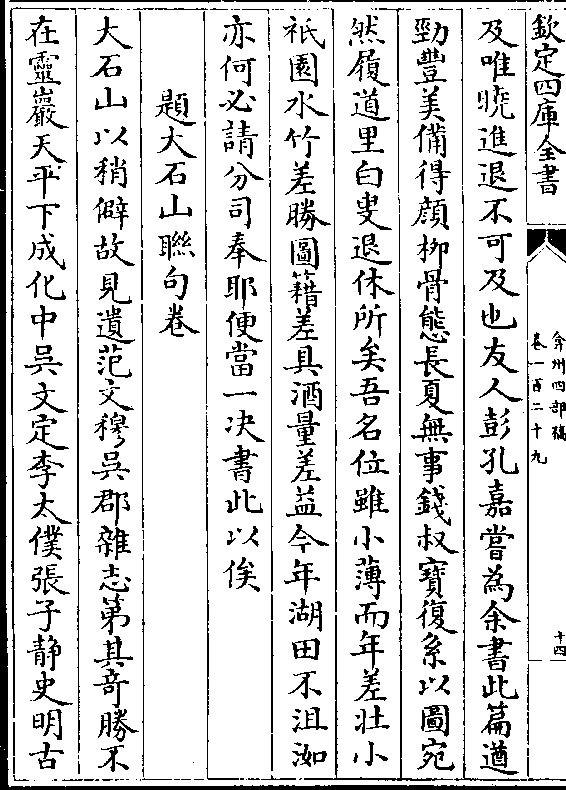 欽定四庫全書
弇州四部稿
卷一百二十九
十四
及唯曉進退不可及也友人彭孔嘉嘗為余書此篇遒
勁豐美備得顔柳骨態長夏無事錢叔寶復系以圖宛
然履道里白叟退休所矣吾名位雖小薄而年差壯小
祇園水竹差勝圖籍差具酒量差益今年湖田不沮洳
亦何必請分司奉耶便當一决書此以俟
題大石山聯句卷
大石山以稍僻故見遺范文穆吳郡雜志第其竒勝不
在靈巖天平下成化中吳文定李太僕張子靜史明古